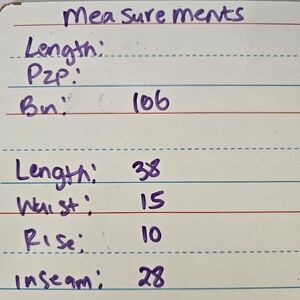 Measurements
Length:
P2P:
Bn: 106
Length: 38
Waist: 15
Rise: 10
inseam: 28